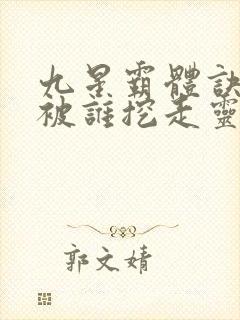 九星霸體訣
被誰挖走靈
郭文婧